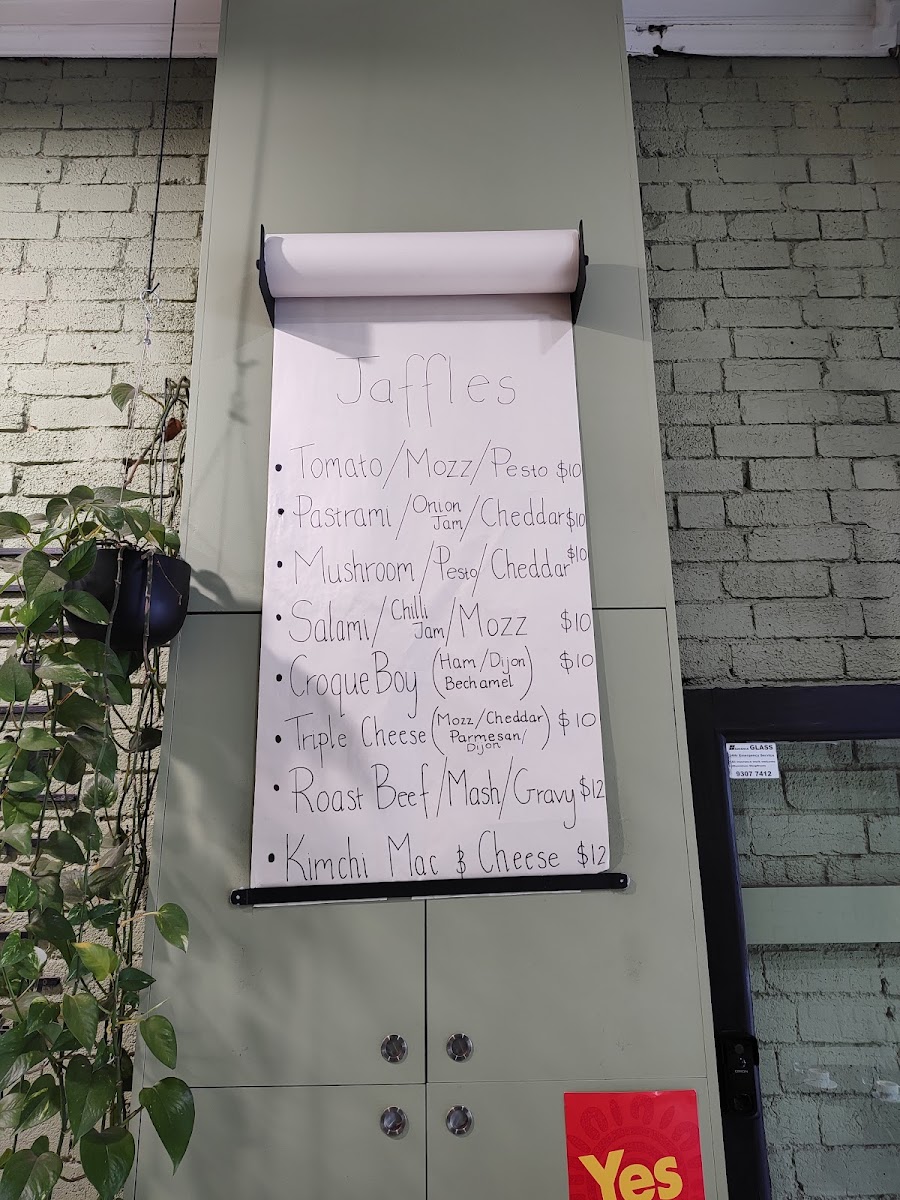 Jaffles
• Tomato/Mozz/Pesto $10
• Pastrami/Onion Jam/Cheddar $10
• Mushroom/Pesto/Cheddar $10
• Salami/Chilli Jam/Mozz $10
• Croque Boy (Ham/Dijon Bechamel) $10
• Triple Cheese (Mozz/Cheddar Parmesan/Dijon) $10
• Roast Beef/Mash/Gravy $12
• Kimchi Mac & Cheese $12
GLASS
9307 7412
Yes